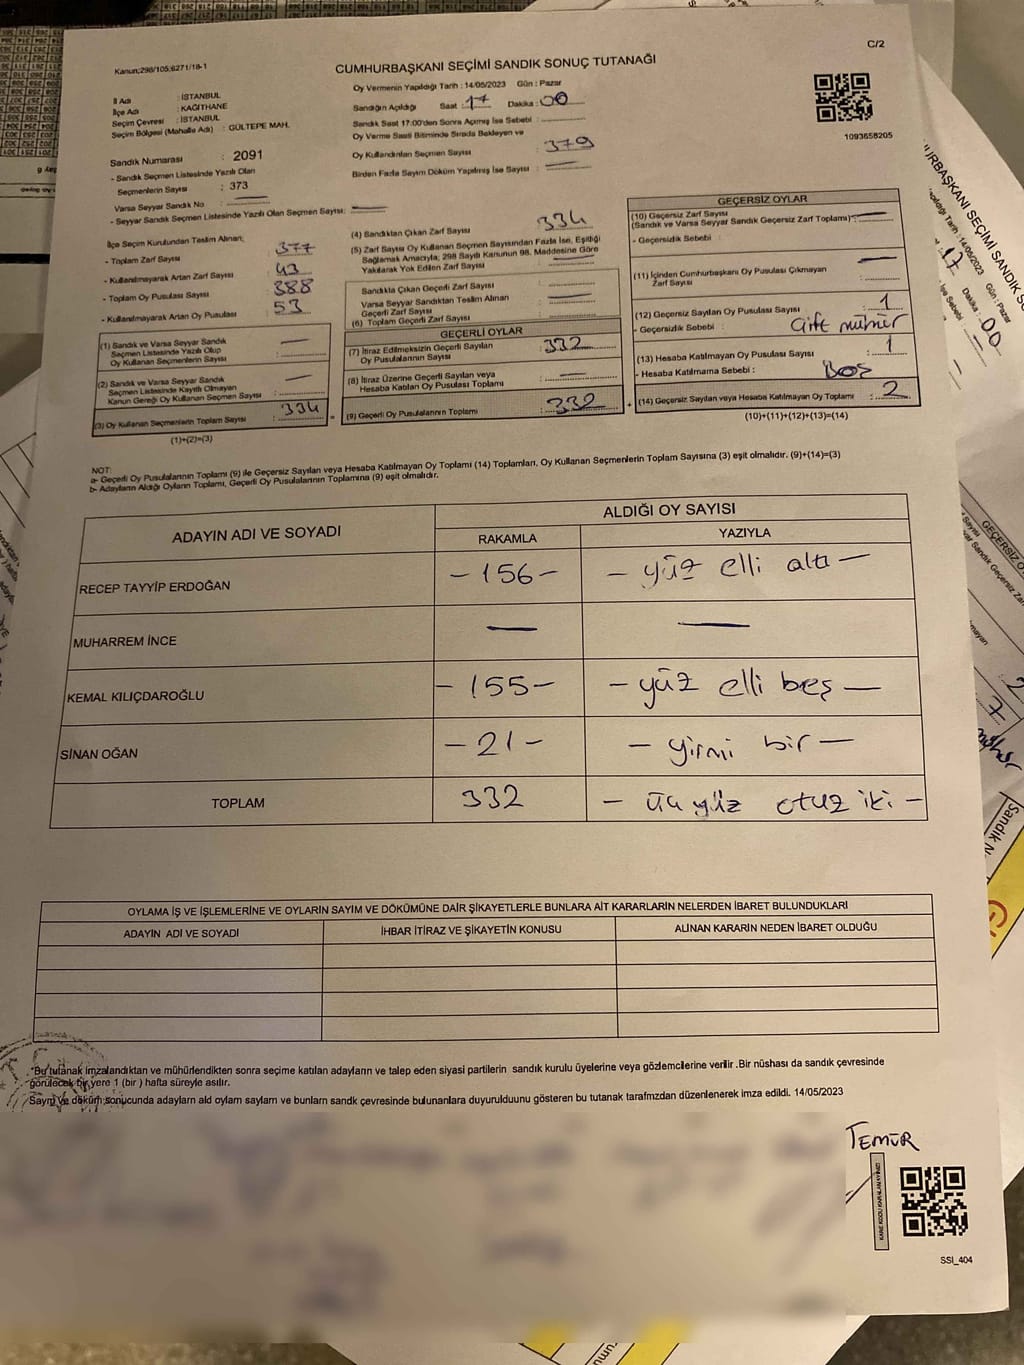 C/2
Kanun;298/105;6271/18-1
CUMHURBAŞKANI SEÇİMİ SANDIK SONUÇ TUTANAĞI
İl Adı : İSTANBUL
İlçe Adı : KAĞITHANE
Seçim Çevresi : İSTANBUL
Seçim Bölgesi (Mahalle Adı) : GÜLTEPE MAH.
Sandık Numarası : 2091
- Sandık Seçmen Listesinde Yazılı Olan
Seçmenlerin Sayısı : 373
Varsa Seyyar Sandık No :
- Seyyar Sandık Seçmen Listesinde Yazılı Olan Seçmen Sayısı:
Oy Vermenin Yapıldığı Tarih : 14/05/2023 Gün : Pazar
Sandığın Açıldığı Saat : 17 Dakika : 00
Sandık Saat 17:00'den Sonra Açılmış İse Sebebi :
Oy Verme Saati Bitiminde Sırada Bekleyen ve
Oy Kullandırılan Seçmen Sayısı : 379
Birden Fazla Sayım Döküm Yapılmış İse Sayısı :
1093658205
İlçe Seçim Kurulundan Teslim Alınan;
- Toplam Zarf Sayısı : 377
- Kullanılmayarak Artan Zarf Sayısı : 43
- Toplam Oy Pusulası Sayısı : 388
- Kullanılmayarak Artan Oy Pusulası : 53
(1) Sandık ve Varsa Seyyar Sandık
Seçmen Listesinde Yazılı Olup
Oy Kullanan Seçmenlerin Sayısı :
(2) Sandık ve Varsa Seyyar Sandık
Seçmen Listesinde Kayıtlı Olmayan
Kanun Gereği Oy Kullanan Seçmen Sayısı :
(3) Oy Kullanan Seçmenlerin Toplam Sayısı : 334 =
(1)+(2)=(3)
(4) Sandıktan Çıkan Zarf Sayısı : 334
(5) Zarf Sayısı Oy Kullanan Seçmen Sayısından Fazla İse, Eşitliği
Sağlamak Amacıyla; 298 Sayılı Kanunun 98. Maddesine Göre
Yakılarak Yok Edilen Zarf Sayısı :
Sandıkta Çıkan Geçerli Zarf Sayısı :
Varsa Seyyar Sandıktan Teslim Alınan
Geçerli Zarf Sayısı :
(6) Toplam Geçerli Zarf Sayısı :
GEÇERLİ OYLAR
(7) İtiraz Edilmeksizin Geçerli Sayılan
Oy Pusulalarının Sayısı : 332
(8) İtiraz Üzerine Geçerli Sayılan veya
Hesaba Katılan Oy Pusulası Toplamı :
(9) Geçerli Oy Pusulalarının Toplamı : 332 +
GEÇERSİZ OYLAR
(10) Geçersiz Zarf Sayısı
(Sandık ve Varsa Seyyar Sandık Geçersiz Zarf Toplamı):
- Geçersizlik Sebebi :
(11) İçinden Cumhurbaşkanı Oy Pusulası Çıkmayan
Zarf Sayısı :
(12) Geçersiz Sayılan Oy Pusulası Sayısı : 1
- Geçersizlik Sebebi : Çift mühür
(13) Hesaba Katılmayan Oy Pusulası Sayısı : 1
- Hesaba Katılmama Sebebi : Boş
(14) Geçersiz Sayılan veya Hesaba Katılmayan Oy Toplamı : 2
(10)+(11)+(12)+(13)=(14)
NOT:
a- Geçerli Oy Pusulalarının Toplamı (9) ile Geçersiz Sayılan veya Hesaba Katılmayan Oy Toplamı (14) Toplamları, Oy Kullanan Seçmenlerin Toplam Sayısına (3) eşit olmalıdır. (9)+(14)=(3)
b- Adayların Aldığı Oyların Toplamı, Geçerli Oy Pusulalarının Toplamına (9) eşit olmalıdır.
ADAYIN ADI VE SOYADI
ALDIĞI OY SAYISI
RAKAMLA YAZIYLA
RECEP TAYYİP ERDOĞAN -156- - yüz elli altı -
MUHARREM İNCE — —
KEMAL KILIÇDAROĞLU -155- - yüz elli beş -
SİNAN OĞAN -21- - yirmi bir -
TOPLAM 332 - üç yüz otuz iki -
OYLAMA İŞ VE İŞLEMLERİNE VE OYLARIN SAYIM VE DÖKÜMÜNE DAİR ŞİKAYETLERLE BUNLARA AİT KARARLARIN NELERDEN İBARET BULUNDUKLARI
ADAYIN ADI VE SOYADI İHBAR İTİRAZ VE ŞİKAYETİN KONUSU ALINAN KARARIN NEDEN İBARET OLDUĞU
"Bu tutanak imzalandıktan ve mühürlendikten sonra seçime katılan adayların ve talep eden siyasi partilerin sandık kurulu üyelerine veya gözlemcilerine verilir .Bir nüshası da sandık çevresinde
görülecek bir yere 1 (bir ) hafta süreyle asılır.
Sayım ve döküm sonucunda adayların ald oyların sayların ve bunların sandk çevresinde bulunanlara duyurulduunu gösteren bu tutanak tarafmzdan düzenlenerek imza edildi. 14/05/2023
TEMUR
KARE KODU KARALAMAYINIZ!
SSI_404